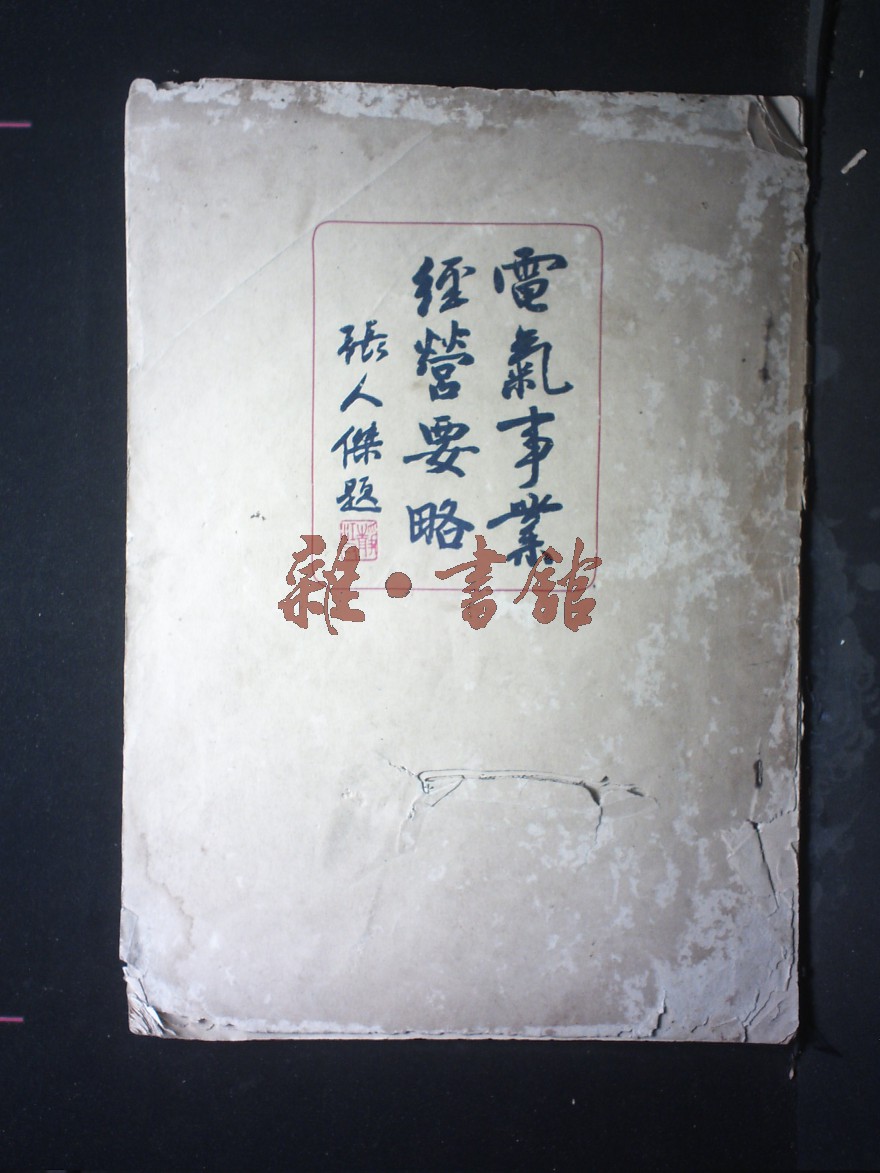 電氣事業
經營要略
張人傑題
雜·書館